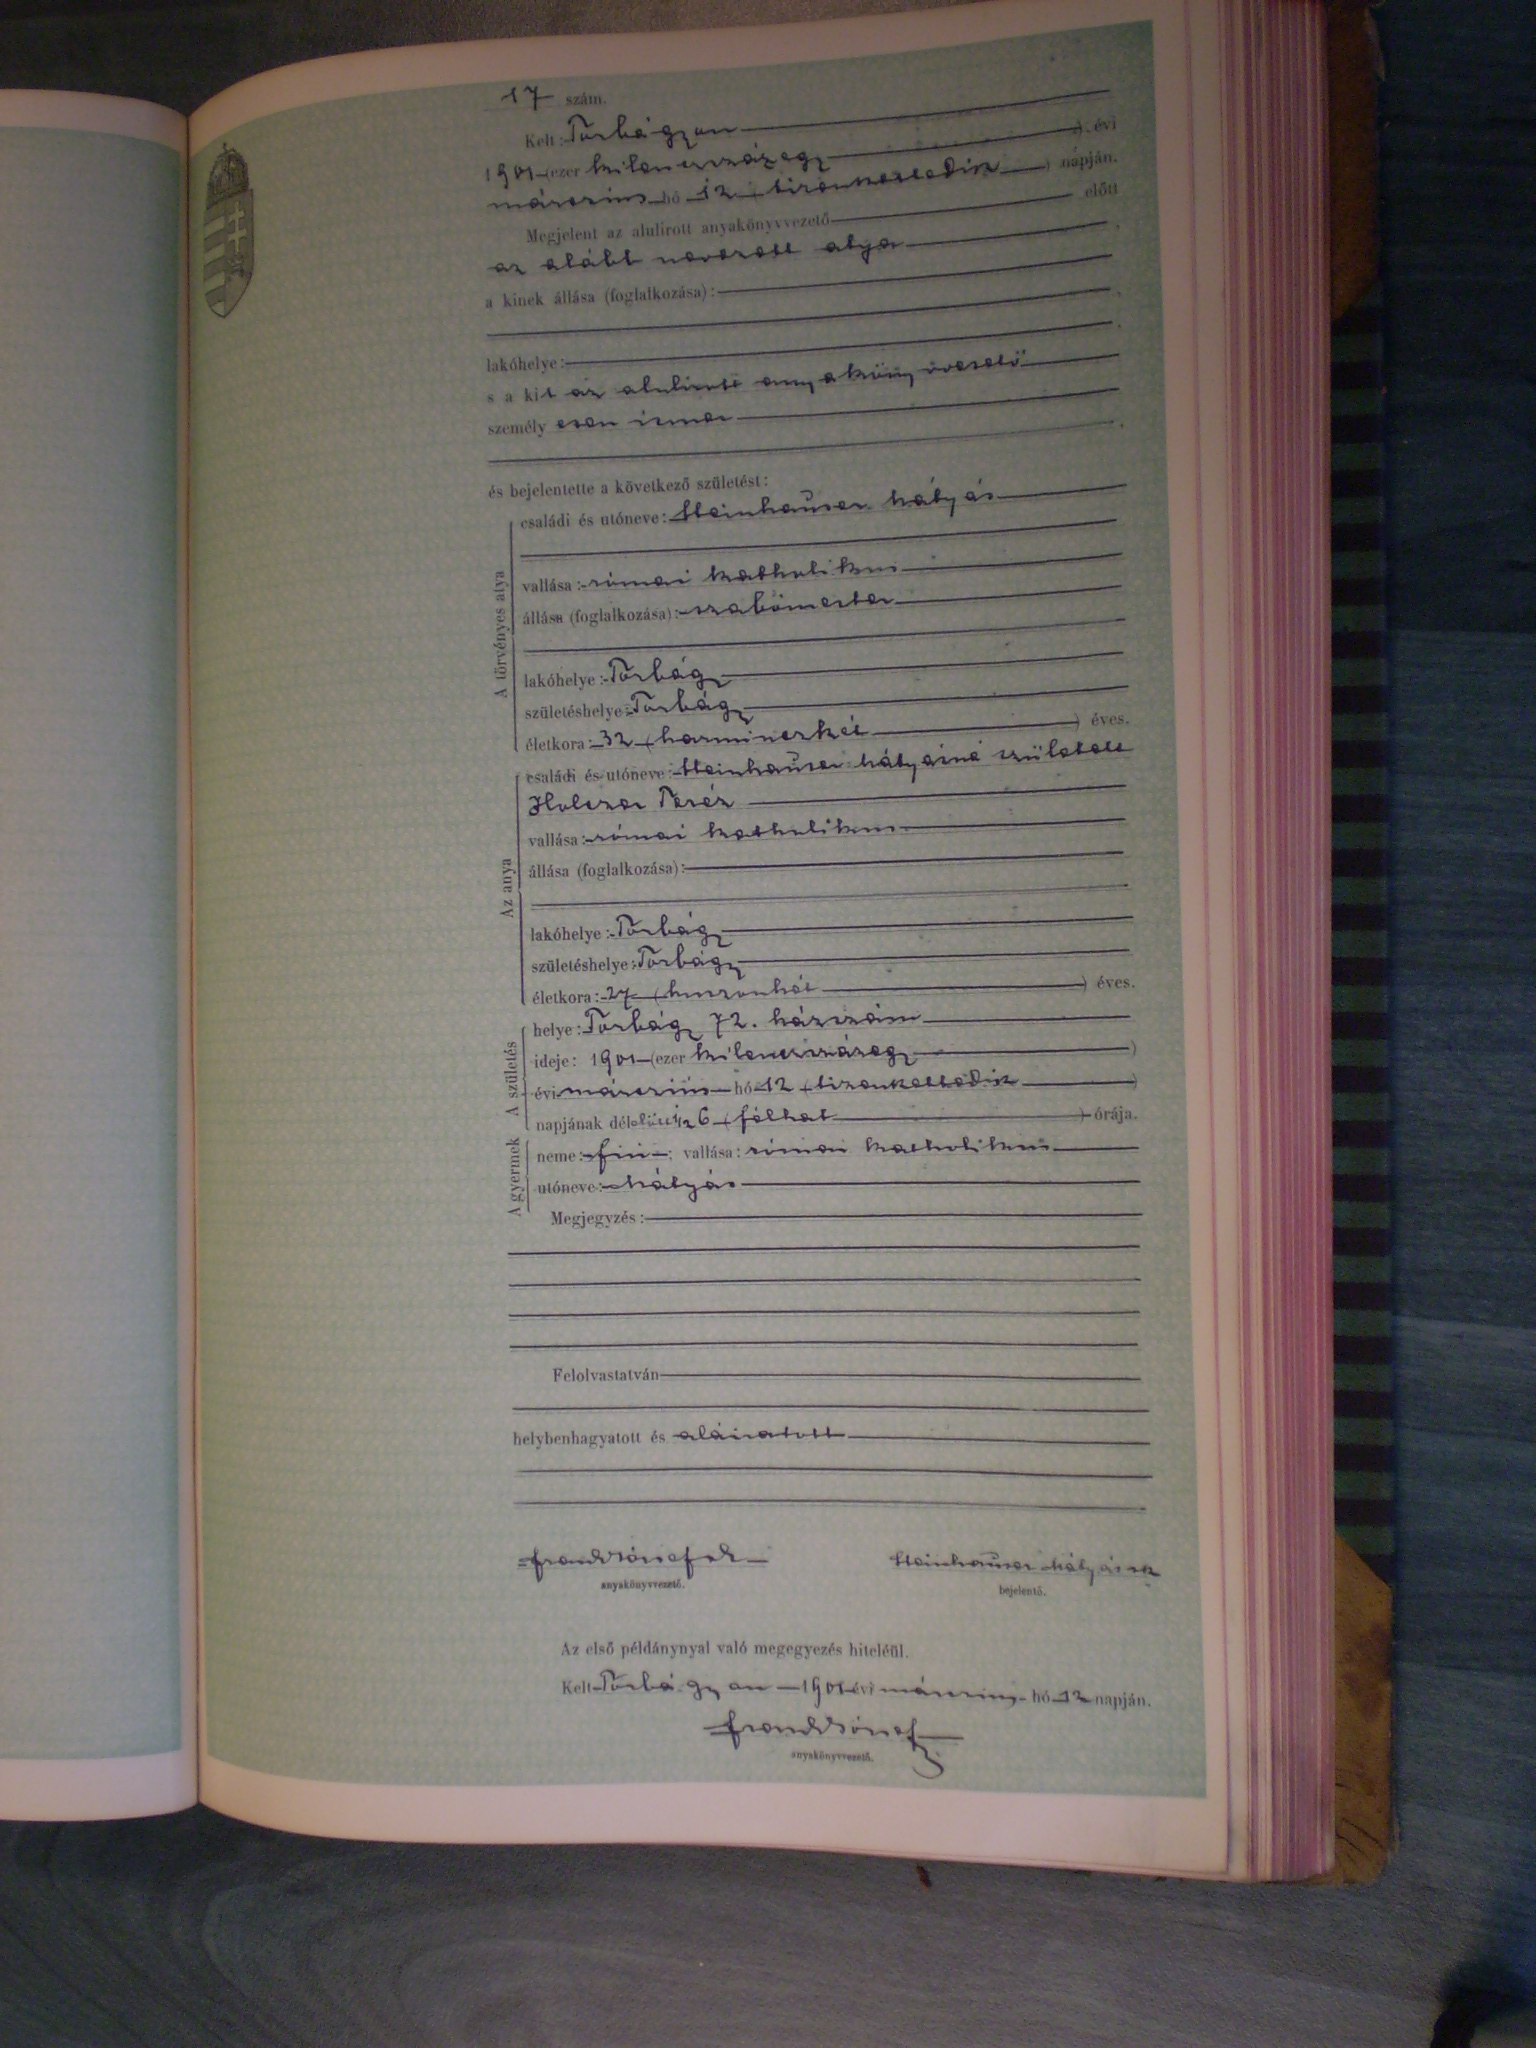 17 szám.
Kelt: Torbágyon
1901 (ezer kilenczszázegy) évi
márczius hó 12 (tizenkettedik) napján.
Megjelent az alulirott anyakönyvvezető előtt
az alább nevezett atya
a kinek állása (foglalkozása):
lakóhelye:
s a kit az alulirott anyakönyvvezető
személyesen ismer
és bejelentette a következő születést:
A törvényes atya
családi és utóneve: Steinhauser Mátyás
vallása: római katholikus
állása (foglalkozása): szabómester
lakóhelye: Torbágy
születéshelye: Torbágy
életkora: 32 (harminczkét) éves.
Az anya
családi és utóneve: Steinhauser Mátyásné született
Holczer Teréz
vallása: római katholikus
állása (foglalkozása):
lakóhelye: Torbágy
születéshelye: Torbágy
életkora: 27 (huszonhét) éves.
A születés
helye: Torbágy 72. házszám
ideje: 1901 (ezer kilenczszázegy)
évi márczius hó 12 (tizenkettedik)
napjának délelőtti ½6 (félhat) órája.
A gyermek
neme: fiú; vallása: római katholikus
utóneve: Mátyás
Megjegyzés:
Felolvastatván
helybenhagyatott és aláiratott
Frank József
anyakönyvvezető.
Steinhauser Mátyás
bejelentő.
Az első példánynyal való megegyezés hiteléül.
Kelt Torbágyon 1901 évi márczius hó 12 napján.
Frank József
anyakönyvvezető.